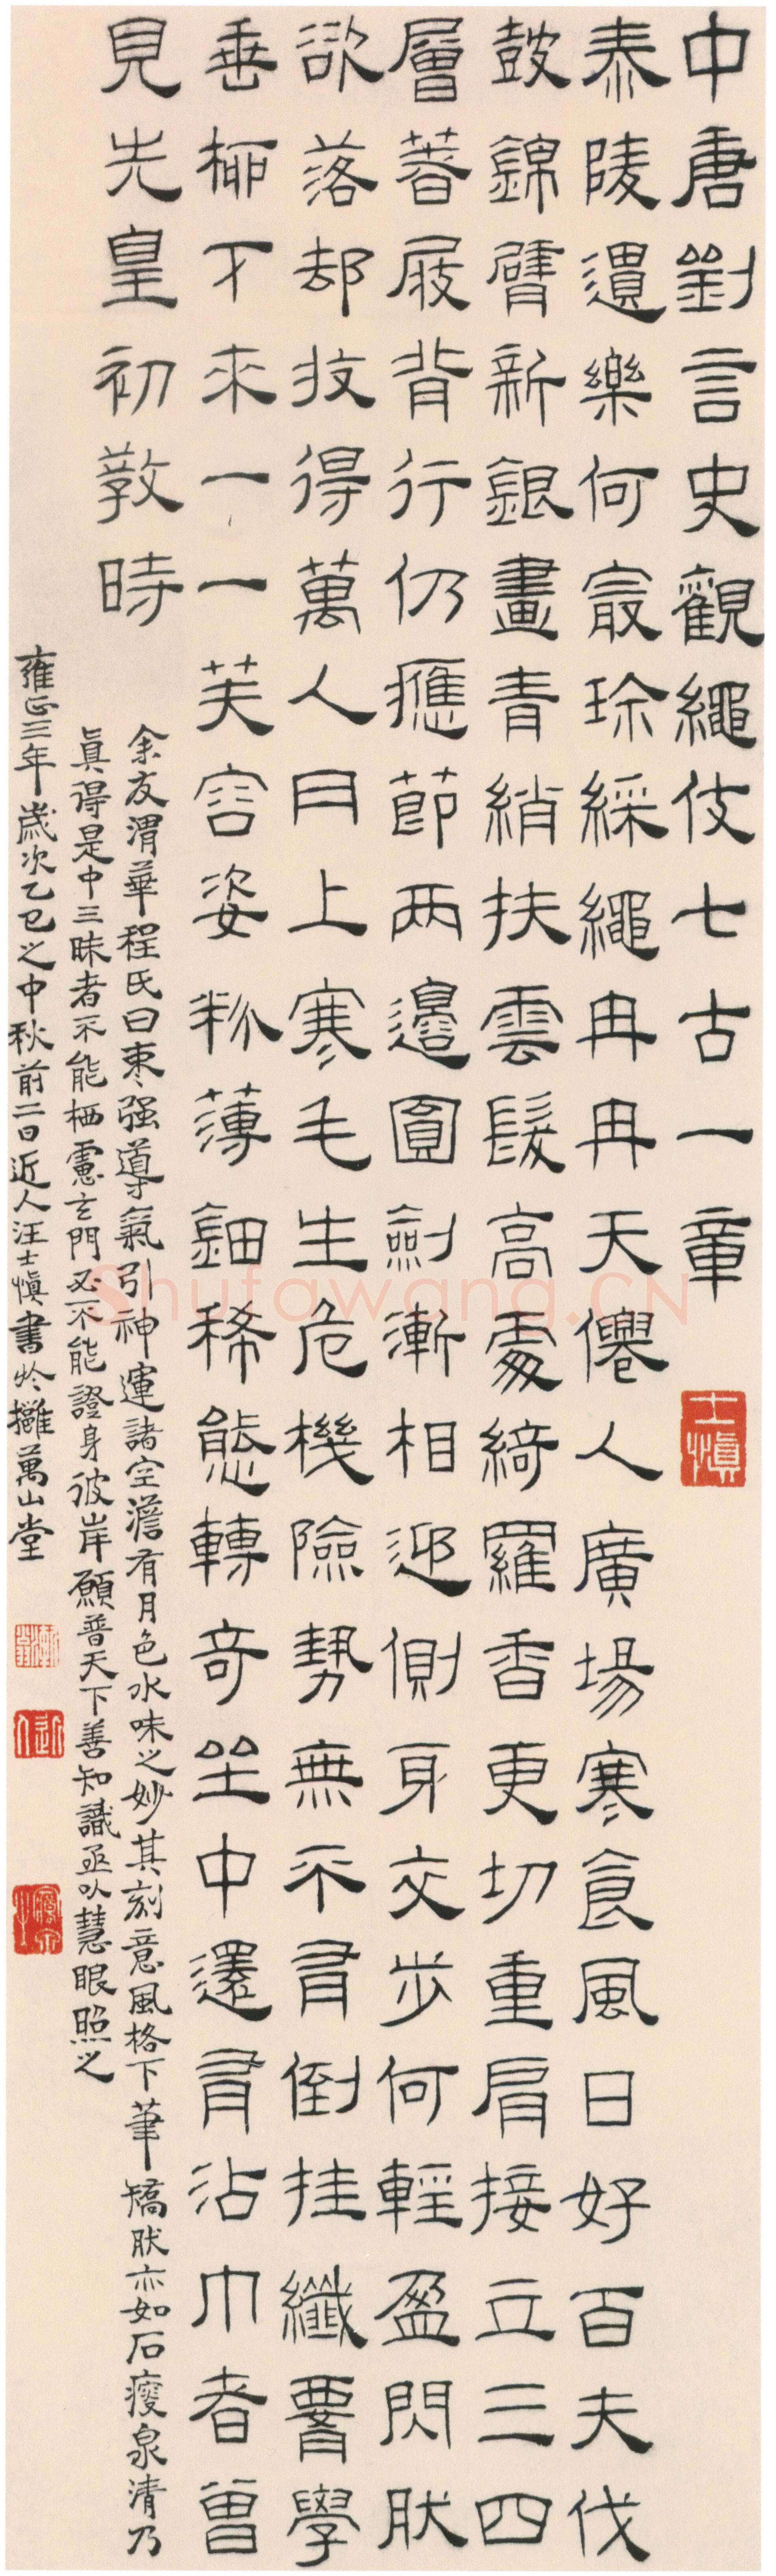 中唐劉言史觀繩伎七古一章
士慎
泰陵遺樂何冣珎綵繩冉冉天僊人廣場寒食風日好百夫伐
鼓錦臂新銀畫青綃抹雲髮高處綺羅香更切重肩接立三四
層著屐背行仍應節兩邊圓劍漸相迎側身交步何輕盈閃肰
欲落却收得萬人月上寒毛生危機險勢無不有倒挂纖䙅學
垂楊下來一一芙容姿粉薄鈿稀態轉奇坐中還有沾巾者曾
見先皇初敎時
余友渭華程氏曰枣强導氣引神運諸空澹有月色水味之妙其刻意風格下筆矯肰亦如石瘦泉清乃
眞得是中三昧者不能栖慮玄門必不能證身彼岸願普天下善知識亟以慧眼照之
雍正三年歲次乙巳之中秋前二日近人汪士慎書於攤萬山堂
近人
Shufawang.CN